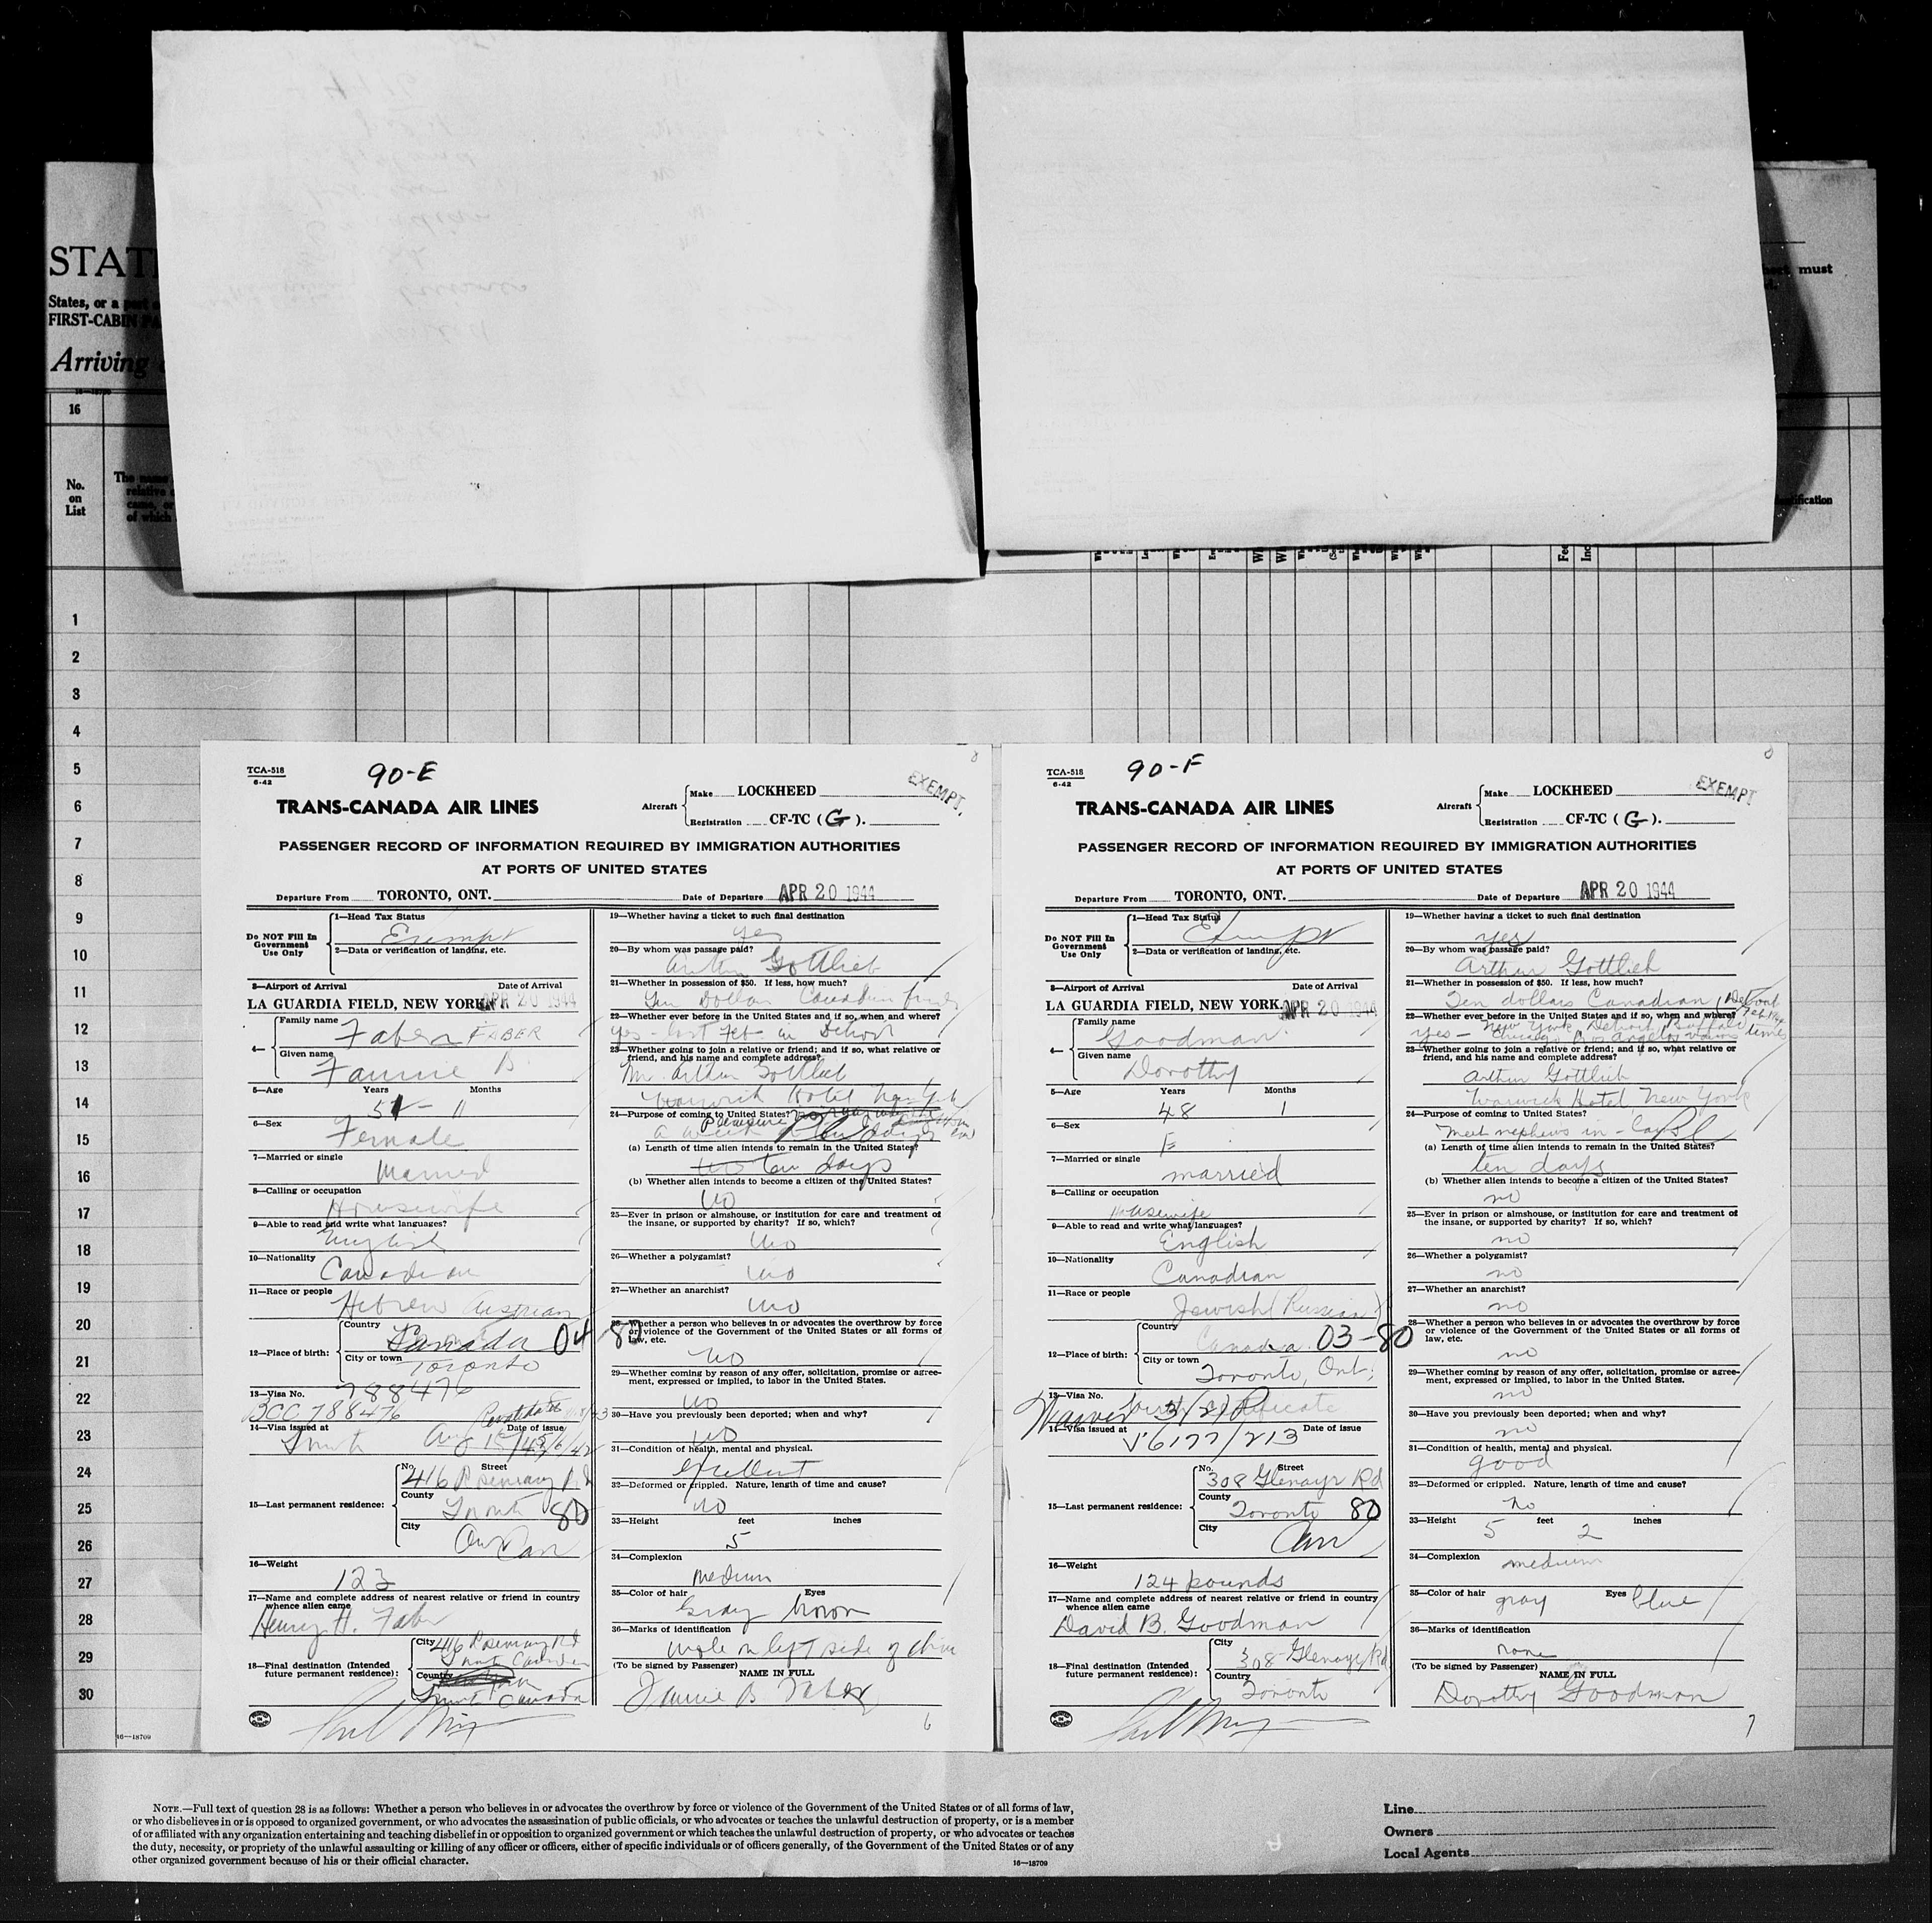 STAT
States, or a part
FIRST-CABIN PA
Arriving
must
16
No.
on
List
The name
relative
came, or
of which
1
2
3
4
5
6
7
8
9
10
11
12
13
14
15
16
17
18
19
20
21
22
23
24
25
26
27
28
29
30
16—18709
TCA-518
6-42
90-E
TRANS-CANADA AIR LINES
Aircraft
Make LOCKHEED
Registration CF-TC (G).
EXEMPT.
PASSENGER RECORD OF INFORMATION REQUIRED BY IMMIGRATION AUTHORITIES
AT PORTS OF UNITED STATES
Departure From TORONTO, ONT. Date of Departure APR 20 1944
Do NOT Fill In
Government
Use Only
1—Head Tax Status
Exempt
2—Data or verification of landing, etc.
3—Airport of Arrival Date of Arrival
LA GUARDIA FIELD, NEW YORK APR 20 1944
4— Family name
Faber FABER
Given name
Fannie B
5—Age Years Months
51 - 11
6—Sex
Female
7—Married or single
Married
8—Calling or occupation
Housewife
9—Able to read and write what languages?
English
10—Nationality
Canadian
11—Race or people
Hebrew Austrian
12—Place of birth: Country
Canada 04-80
City or town
Toronto
13—Visa No. 788476
BCC 788476
14—Visa issued at Date of issue
15—Last permanent residence:
No. Street
416 Rosemary Rd
County
Toronto 80
City
Ont Can
16—Weight
123
17—Name and complete address of nearest relative or friend in country
whence alien came
Henry H. Faber
18—Final destination (Intended
future permanent residence):
City 416 Rosemary Rd
Country
Canada
19—Whether having a ticket to such final destination
yes
20—By whom was passage paid?
Arthur Gottlieb
21—Whether in possession of $50. If less, how much?
Ten Dollars Canadian funds
22—Whether ever before in the United States and if so, when and where?
yes - last Feb in Detroit
23—Whether going to join a relative or friend; and if so, what relative or
friend, and his name and complete address?
Mr. Arthur Gottlieb
Warwick Hotel New York
24—Purpose of coming to United States?
Pleasure
(a) Length of time alien intends to remain in the United States?
ten days
(b) Whether alien intends to become a citizen of the United States?
no
25—Ever in prison or almshouse, or institution for care and treatment of
the insane, or supported by charity? If so, which?
no
26—Whether a polygamist?
no
27—Whether an anarchist?
no
28—Whether a person who believes in or advocates the overthrow by force
or violence of the Government of the United States or all forms of
law, etc.
no
29—Whether coming by reason of any offer, solicitation, promise or agree-
ment, expressed or implied, to labor in the United States.
no
30—Have you previously been deported; when and why?
no
31—Condition of health, mental and physical.
excellent
32—Deformed or crippled. Nature, length of time and cause?
no
33—Height feet inches
5
34—Complexion
medium
35—Color of hair Eyes
Gray brown
36—Marks of identification
mole on left side of chin
(To be signed by Passenger) NAME IN FULL
Fannie B Faber
6
TCA-518
6-42
90-F
TRANS-CANADA AIR LINES
Aircraft
Make LOCKHEED
Registration CF-TC (G).
EXEMPT
PASSENGER RECORD OF INFORMATION REQUIRED BY IMMIGRATION AUTHORITIES
AT PORTS OF UNITED STATES
Departure From TORONTO, ONT. Date of Departure APR 20 1944
Do NOT Fill In
Government
Use Only
1—Head Tax Status
Exempt
2—Data or verification of landing, etc.
3—Airport of Arrival Date of Arrival
LA GUARDIA FIELD, NEW YORK. APR 20 1944
4— Family name
Goodman
Given name
Dorothy
5—Age Years Months
48 1
6—Sex
F
7—Married or single
married
8—Calling or occupation
Housewife
9—Able to read and write what languages?
English
10—Nationality
Canadian
11—Race or people
Jewish (Russian)
12—Place of birth: Country
Canada 03-80
City or town
Toronto, Ont.
13—Visa No.
Waiver
14—Visa issued at Date of issue
V6177/213
15—Last permanent residence:
No. Street
308 Glenayr Rd
County
Toronto 80
City
Can
16—Weight
124 pounds
17—Name and complete address of nearest relative or friend in country
whence alien came
David B. Goodman
18—Final destination (Intended
future permanent residence):
City
308 Glenayr Rd
Country
Toronto
19—Whether having a ticket to such final destination
yes
20—By whom was passage paid?
Arthur Gottlieb
21—Whether in possession of $50. If less, how much?
Ten dollars Canadian
22—Whether ever before in the United States and if so, when and where?
yes - New York Detroit Buffalo
Chicago Los Angeles various times
23—Whether going to join a relative or friend; and if so, what relative or
friend, and his name and complete address?
Arthur Gottlieb
Warwick Hotel, New York
24—Purpose of coming to United States?
Meet nephews in-law
(a) Length of time alien intends to remain in the United States?
ten days
(b) Whether alien intends to become a citizen of the United States?
no
25—Ever in prison or almshouse, or institution for care and treatment of
the insane, or supported by charity? If so, which?
no
26—Whether a polygamist?
no
27—Whether an anarchist?
no
28—Whether a person who believes in or advocates the overthrow by force
or violence of the Government of the United States or all forms of
law, etc.
no
29—Whether coming by reason of any offer, solicitation, promise or agree-
ment, expressed or implied, to labor in the United States.
no
30—Have you previously been deported; when and why?
no
31—Condition of health, mental and physical.
good
32—Deformed or crippled. Nature, length of time and cause?
no
33—Height feet inches
5 2
34—Complexion
medium
35—Color of hair Eyes
gray blue
36—Marks of identification
none
(To be signed by Passenger) NAME IN FULL
Dorothy Goodman
7
NOTE.—Full text of question 28 is as follows: Whether a person who believes in or advocates the overthrow by force or violence of the Government of the United States or of all forms of law,
or who disbelieves in or is opposed to organized government, or who advocates the assassination of public officials, or who advocates or teaches the unlawful destruction of property, or is a member
of or affiliated with any organization entertaining and teaching disbelief in or opposition to organized government or which teaches the unlawful destruction of property, or who advocates or teaches
the duty, necessity, or propriety of the unlawful assaulting or killing of any officer or officers, either of specific individuals or of officers generally, of the Government of the United States or of any
other organized government because of his or their official character.
16—18709
Line
Owners
Local Agents